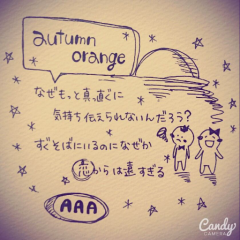 autumn
orange
なぜもっと真っ直ぐに
気持ち伝えられないんだろう?
すぐそばにいるのになぜか
恋からは遠すぎる
AAA
Candy
CAMERA